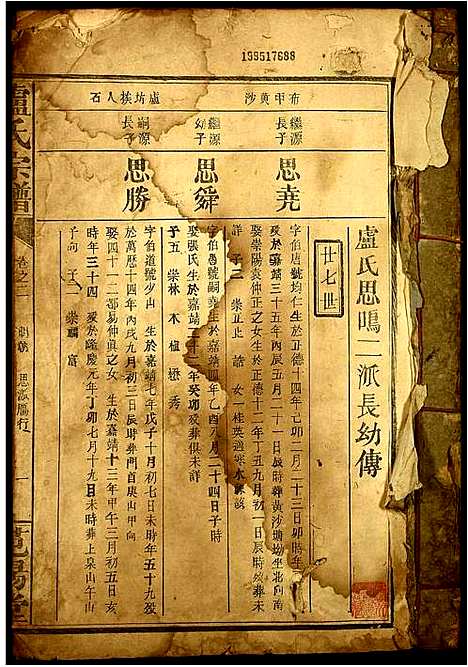 199517688
盧氏思鳴二派長幼傳
廿七世
布甲黄沙
繼源長子
思堯
字伯唐號均仁生於正德十四年己卯二月二十三日卯時
歿於嘉靖三十五年丙辰五月二十一日辰時葬黄沙頭坳坐北向南
娶崇陽袁仲正之女生於正德十二年丁丑九月初一日辰時歿葬未
詳 子三 崇正止 誥 女一桂英適
繼源幼子
思舜
字伯愚號嗣
娶張氏生
子五 崇林 木 植 懋 秀
酉八月二十四日子時
癸卯歿葬俱未詳
盧坊挨人石
嗣源長子
思勝
字伯道號少山 生於嘉靖七年戊子十月初七日未時年五十九歿
於萬曆十四年丙戌九月初三日辰時葬門首泉山甲向
娶四十一二都易仲眞之女 生於嘉靖十二年甲午三月初五日亥
時年三十四 歿於隆慶元年丁卯七月十九日未時葬上泉山午山
子向 子二 崇鵰 富
盧氏宗譜
卷之二
思派雁行
一
範陽堂